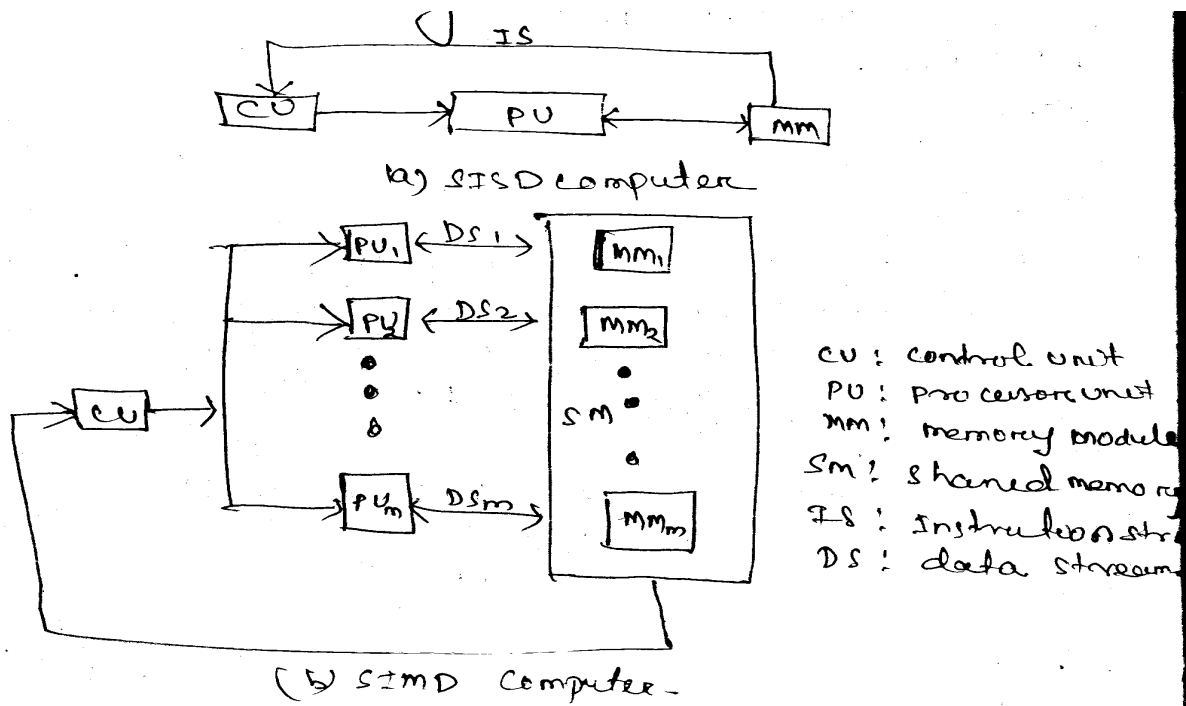 IS
CU PU MM
(a) SISD computer
PU1 DS1 MM1
PU2 DS2 MM2
CU SM
PUm DSm MMm
CU : control unit
PU : processor unit
MM : memory module
SM : shared memory
IS : Instrution str
DS : data stream
(b) SIMD Computer